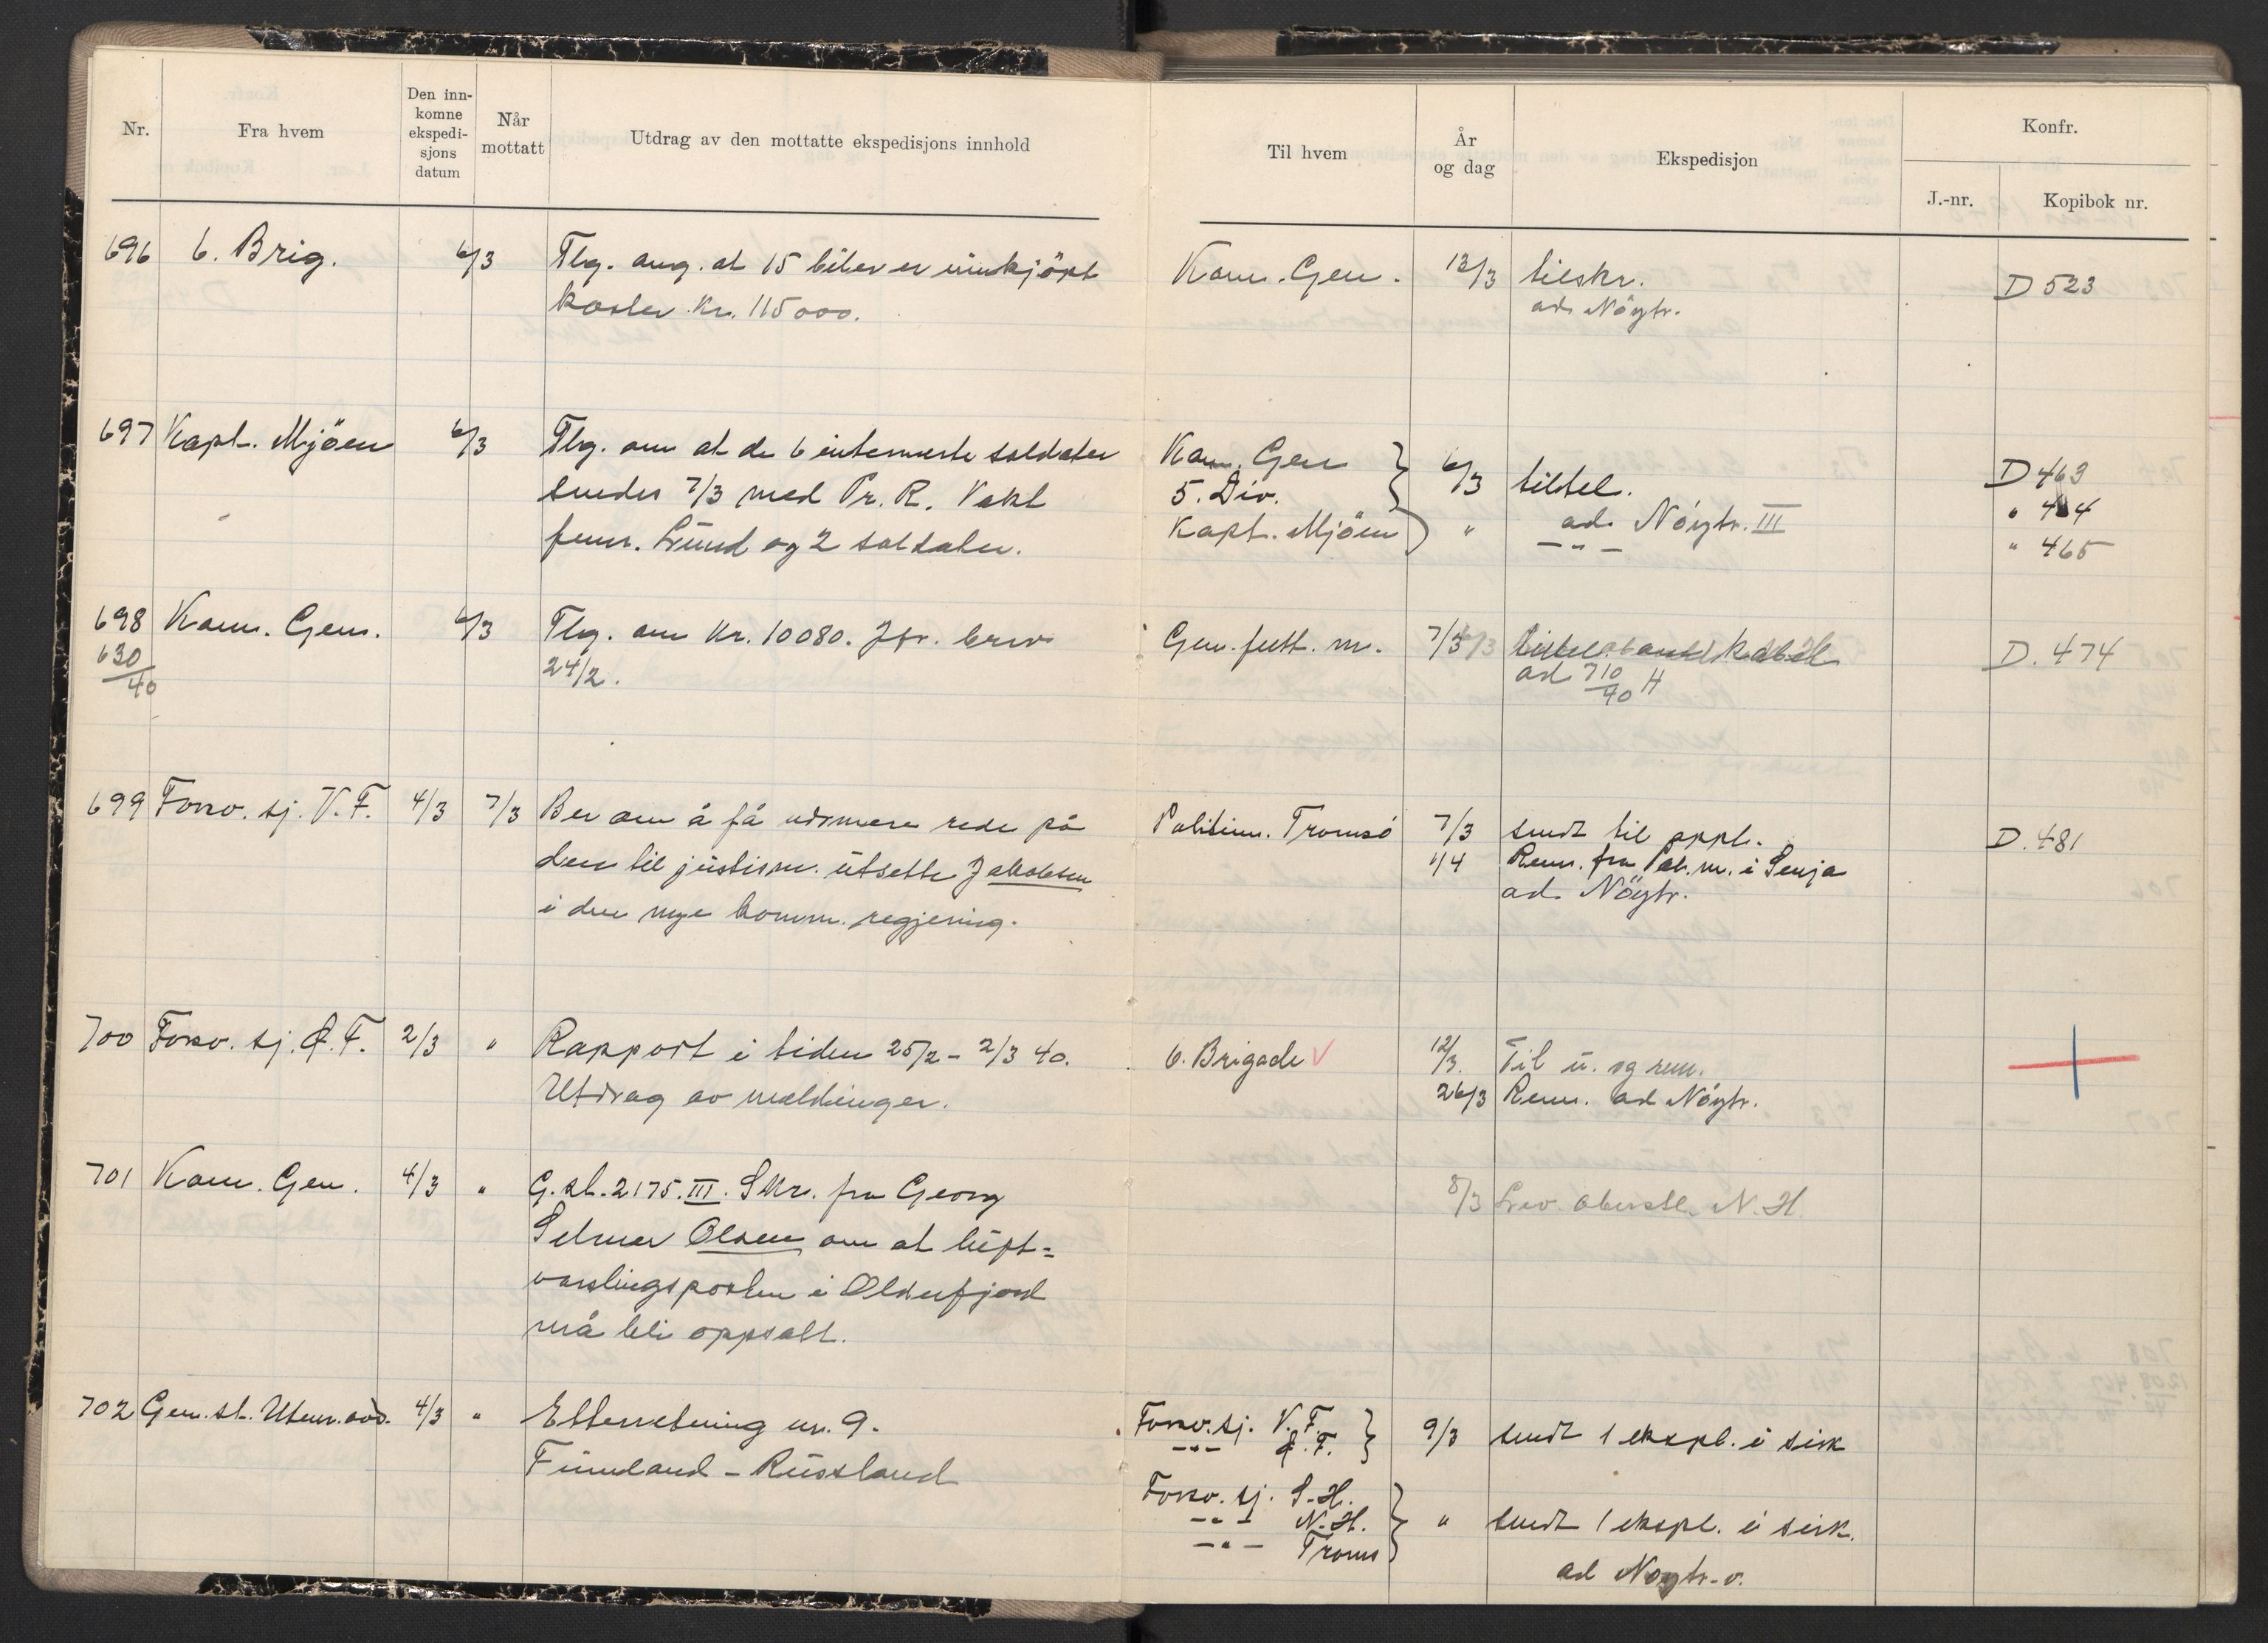 Nr.
Fra hvem
Den inn-
komne
ekspedi-
sjons
datum
Når
mottatt
Utdrag av den mottatte ekspedisjons innhold
Til hvem
År
og dag
Ekspedisjon
Konfr.
J.-nr.
Kopibok nr.
696 6. Brig. 6/3 Tlg. ang. at 15 biler er innkjöpt
koster kr. 115000.
Kom. Gen. 12/3 tilskr.
ad. Nöytr.
D 523
697 Kapt. Mjöen 6/3 Tlg. om at de 6 internerte soldater
sendes 7/3 med Pr. R. Vakt
fenr. Lund og 2 soldater.
Kom. Gen
5. Div. 6/3 tiltel.
Kapt. Mjöen " ad. Nöytr. III
— " —
D 463
" 464
" 465
698 Kom. Gen. 6/3 Tlg. om kr. 10080. Jfr. brev
630/40
24/2.
Gen. felt. m. 7/3
ad 710/40 H
D. 474
699 Forsv. sj. V.F. 4/3 7/3 Ber om å få nærmere rede på
den til justism. utsette Jakobsen
i den nye komm. regjering.
Politim. Tromsö 7/3 sendt til oppl.
1/4 Rem. fra Pol. m. i Senja
ad. Nöytr.
D. 481
700 Forsv. sj. Ø.F. 2/3 " Rapport i tiden 25/2 - 2/3 40.
Utdrag av meldinger.
6. Brigade V 12/3. Til u. og rem.
26/3 Rem. ad Nöytr.
701 Kom. Gen. 4/3 " G.st. 2175. III. Skr. fra Georg
Selmer Olsen om at luft=
varslingsposten i Olderfjord
må bli oppsatt.
8/3 Lev. oberstl. N. H.
702 Gen.st. Utenr. avd. 4/3 " Etterretning nr. 9.
Finnland - Russland
Forsv. sj. V. F.
— " — Ø. F. 9/3 sendt 1 ekspl. i sirk
Forsv. sj. S. H.
— " — N. H. " sendt 1 ekspl. i sirk.
— " — Troms
ad Nöytr. v.